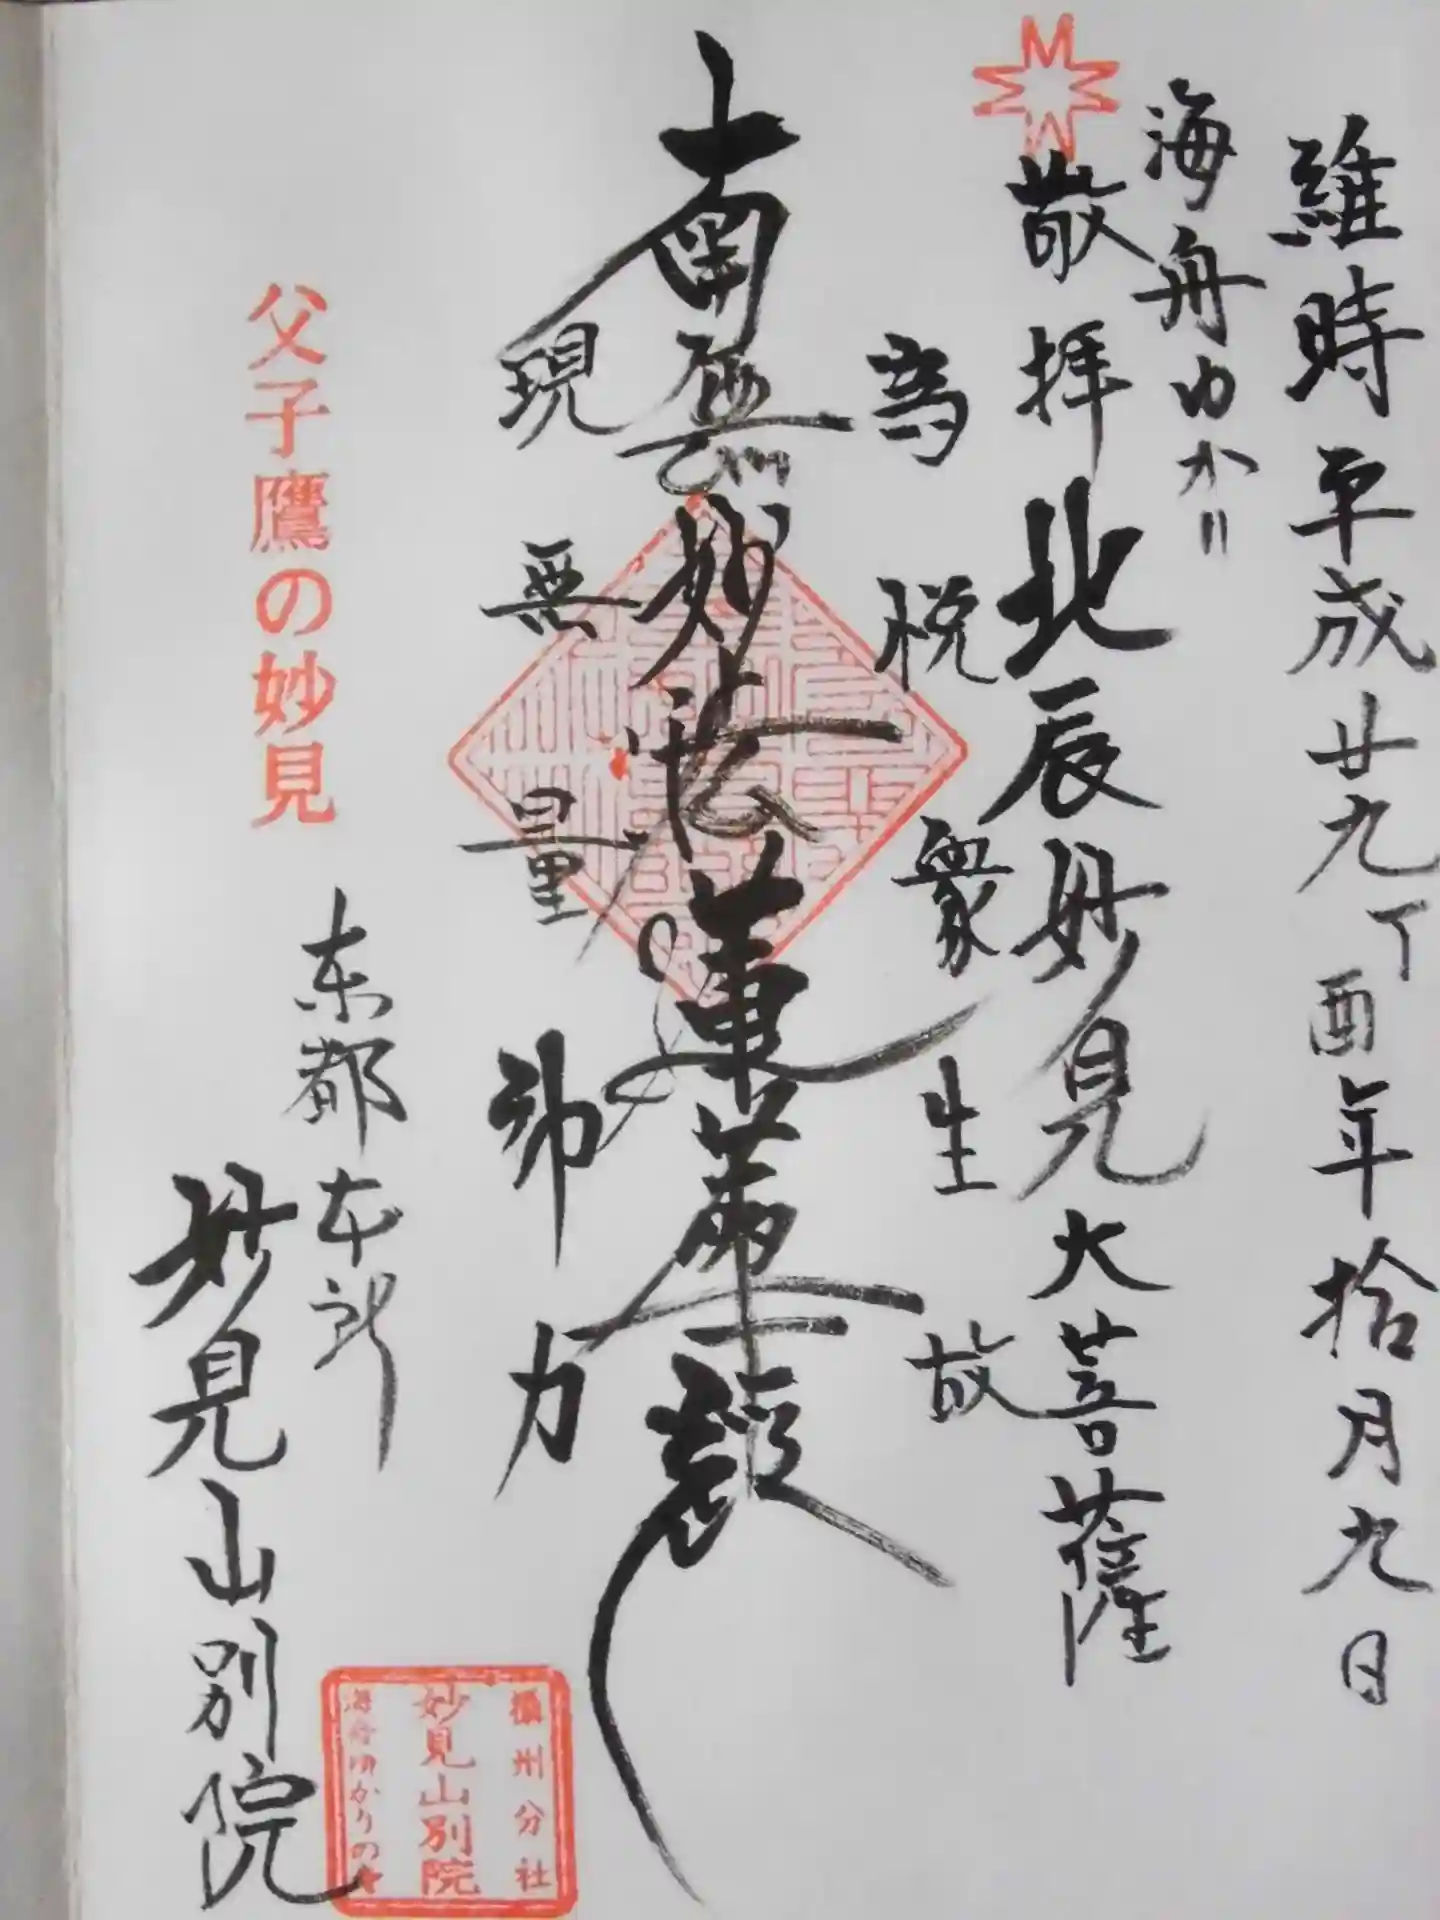 維時平成廿九丁酉年拾月九日
海舟ゆかり
敬拝北辰妙見大菩薩
為悦衆生故
南無妙法蓮華経
現無量神力
父子鷹の妙見
东都本所
妙見山別院
摂州分社
妙見山別院
海舟ゆかりの寺